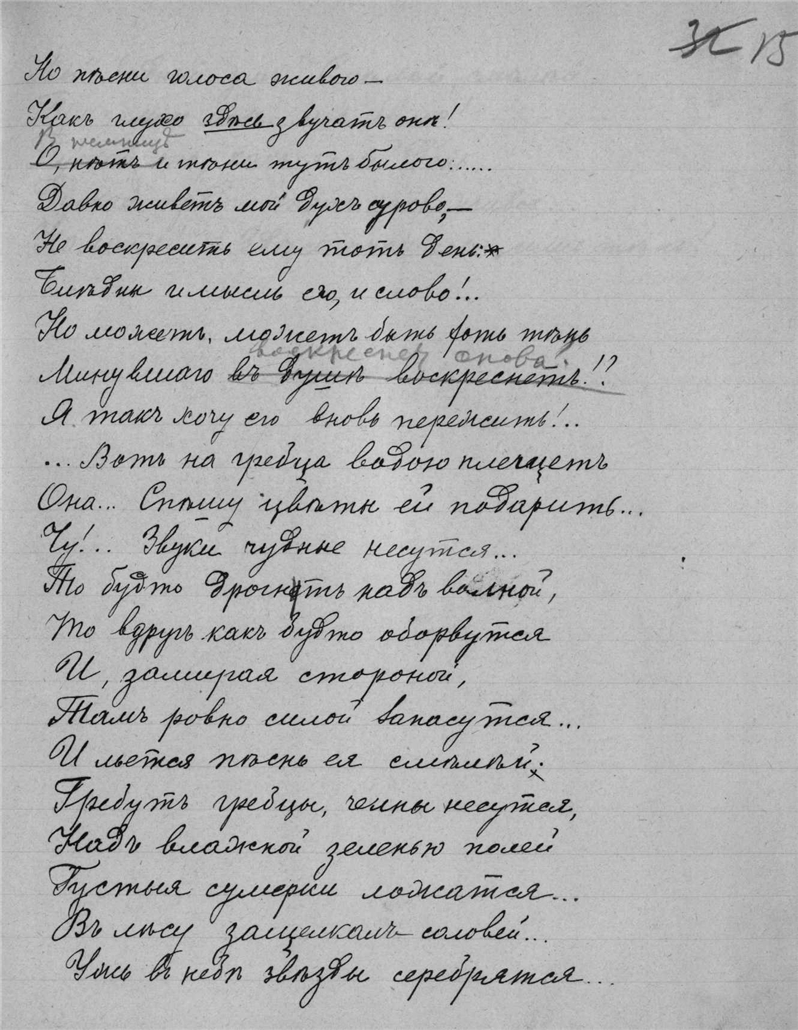 32 15
Но пѣсни голоса живого —
Какъ глухо здѣсь звучатъ онѣ!
Въ темницѣ
О, нѣтъ и тѣни тутъ былого......
Давно живетъ мой духъ сурово, —
Не воскресить ему тотъ день:
Блѣдны и мысль его, и слово!..
Но можетъ, можетъ быть хоть тѣнь
воскреснетъ снова
Минувшаго въ душѣ воскреснетъ!?
Я такъ хочу его вновь пережить!..
... Вотъ на гребца водою плещетъ
Она... Спѣшу цвѣты ей подарить...
Чу!.. Звуки чудные несутся...
То будто дрогнутъ надъ волной,
То вдругъ какъ будто оборвутся
И, замирая стороной,
Тамъ ровно силой запасутся...
И льется пѣснь ея смѣлѣй;
Гребутъ гребцы, челны несутся,
Надъ влажной зеленью полей
Густыя сумерки ложатся...
Въ лѣсу защелкалъ соловей...
Ужь въ небѣ звѣзды серебрятся...